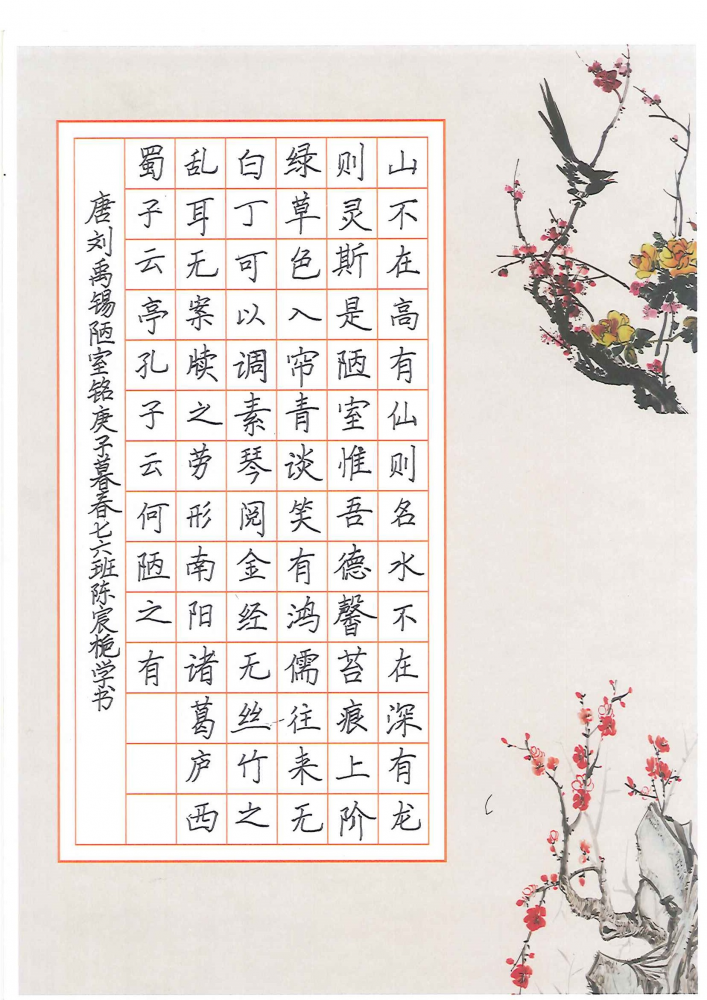 山不在高有仙则名水不在深有龙
则灵斯是陋室惟吾德馨苔痕上阶
绿草色入帘青谈笑有鸿儒往来无
白丁可以调素琴阅金经无丝竹之
乱耳无案牍之劳形南阳诸葛庐西
蜀子云亭孔子云何陋之有
唐刘禹锡陋室铭庚子暮春七六班陈宸栀学书